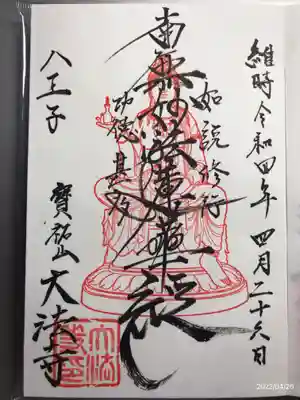 維時令和四年 四月二十六日
如説修行
南無妙法蓮華経
功徳甚多
八王子
寶祐山 大法寺
2022/04/26